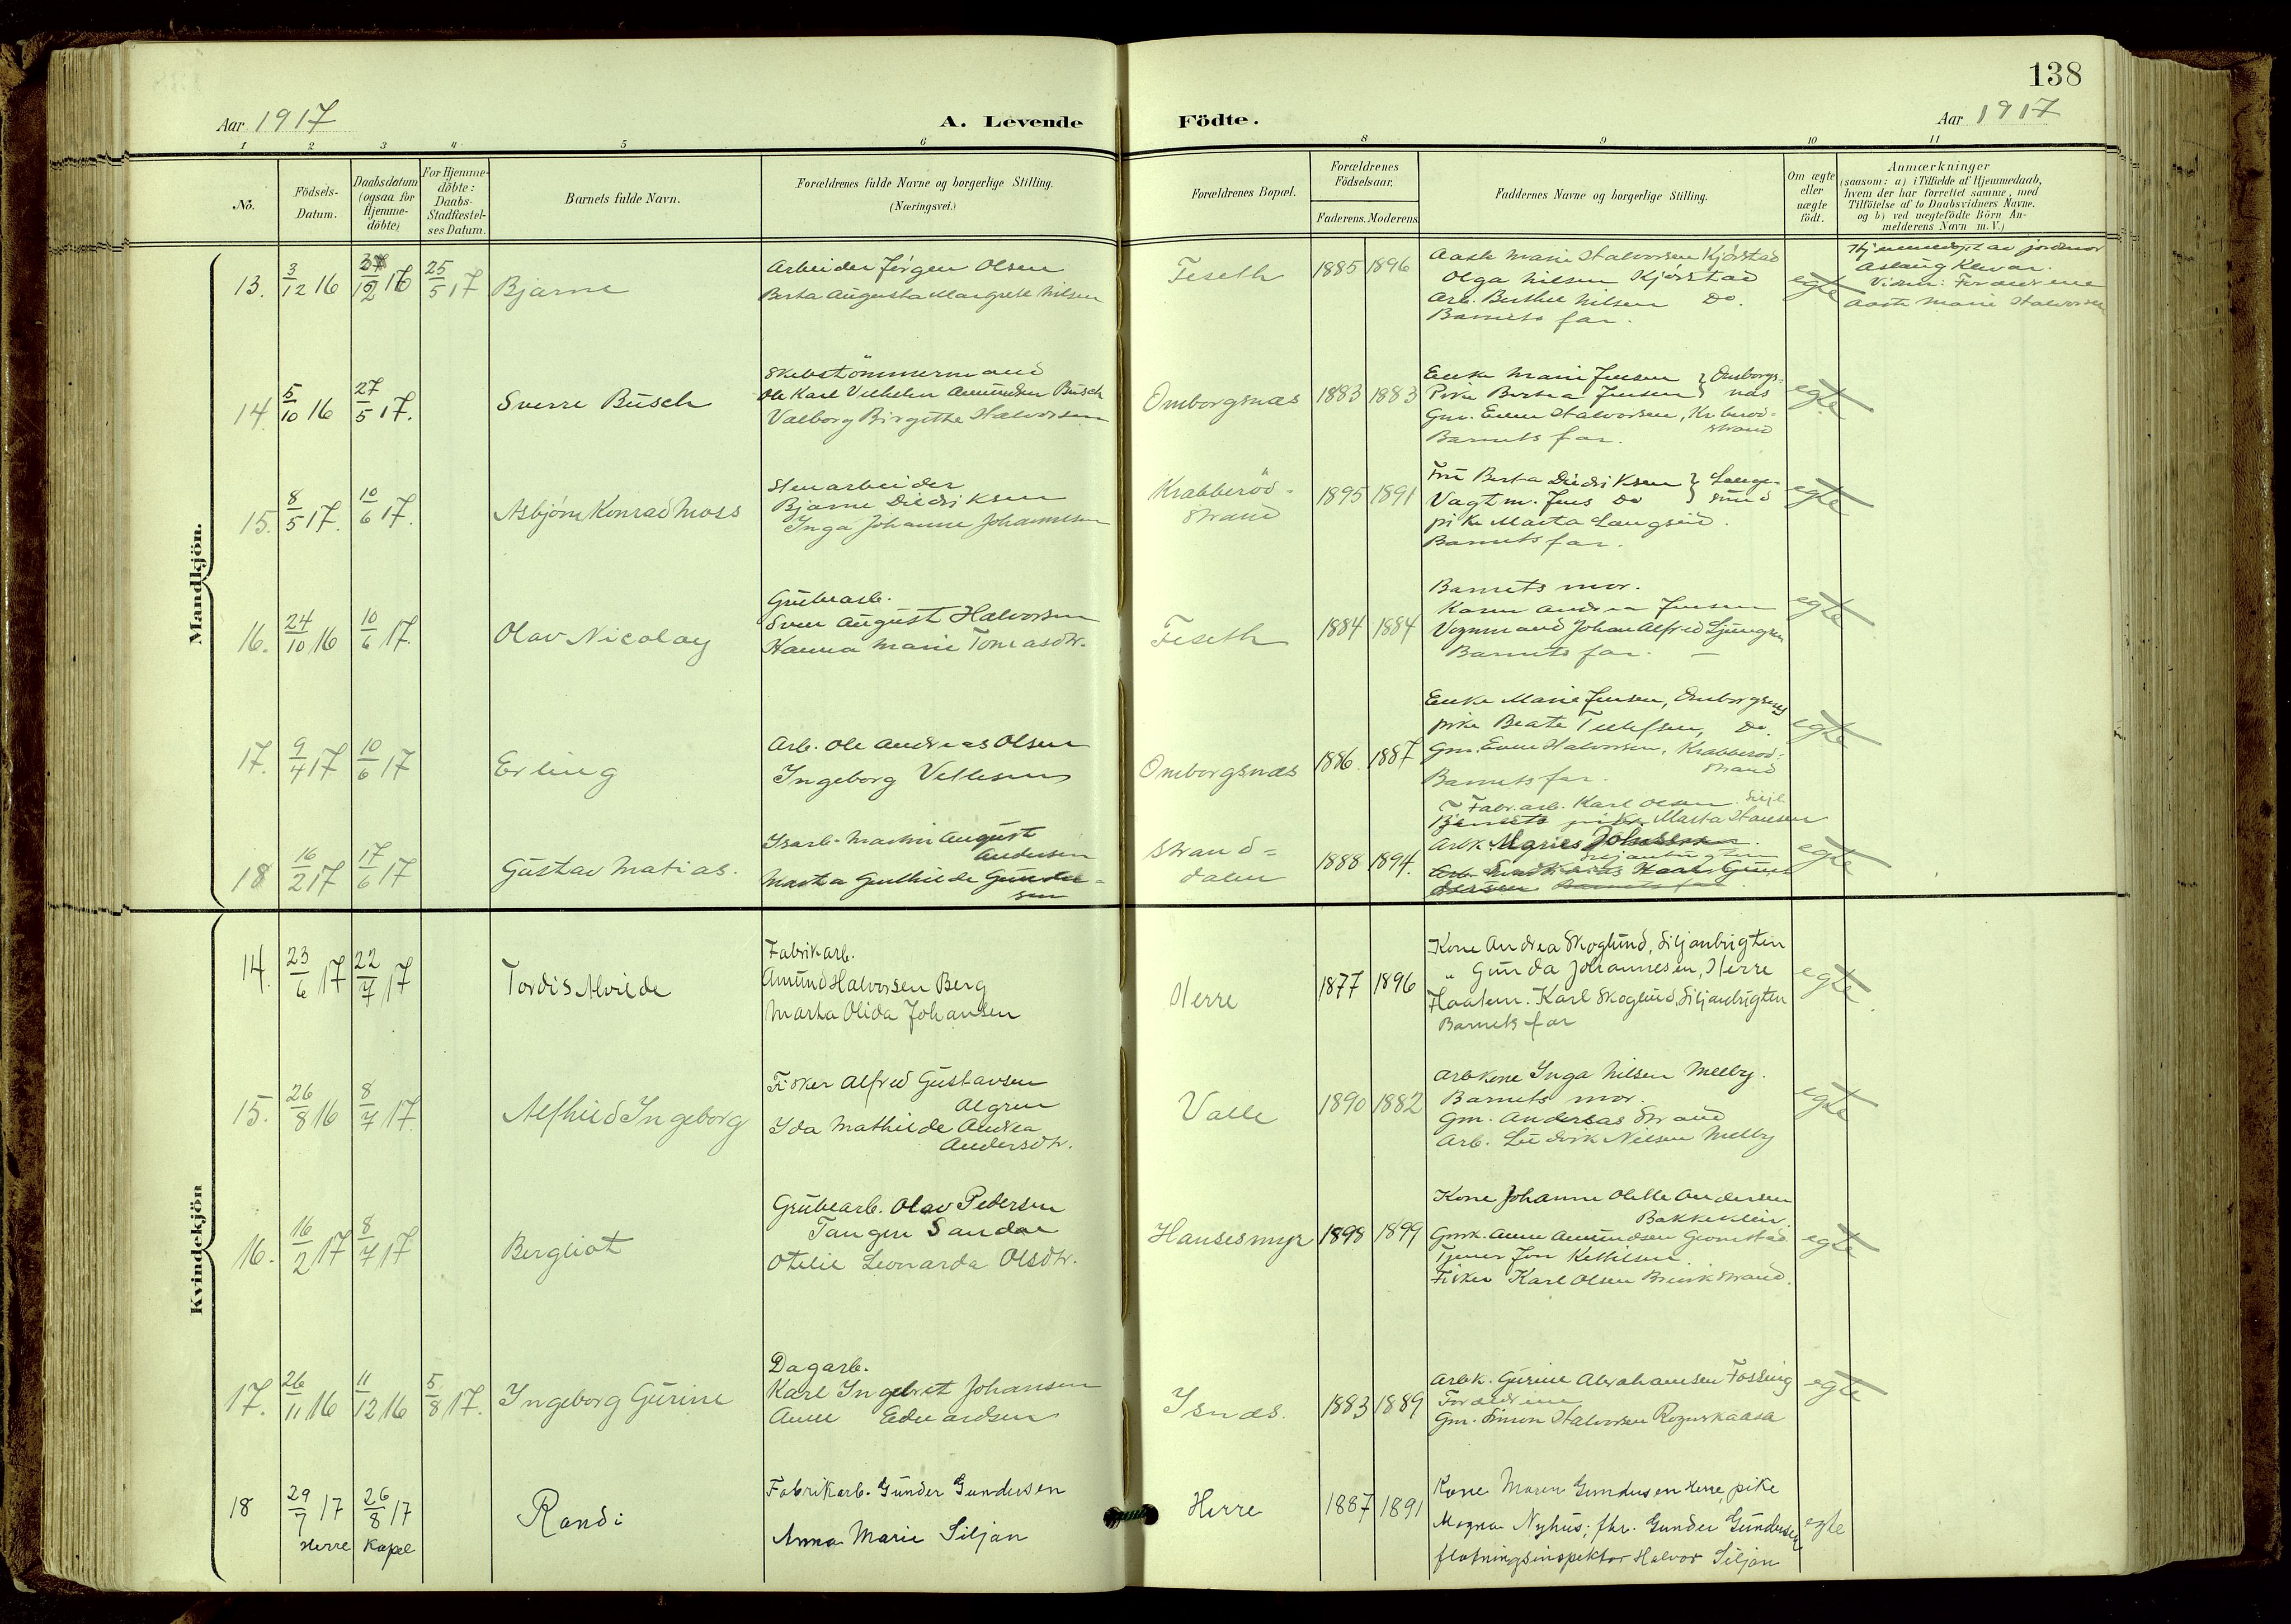 138
Aar 1917
A. Levende
Födte.
Aar 1917
1 2 3 4 5 6 8 9 10 11
No.
Födsels-
Datum.
Daabsdatum
(ogsaa for
Hjemme-
döbte)
For Hjemme-
döbte:
Daabs-
Stadfæstel-
ses Datum.
Barnets fulde Navn.
Forældrenes fulde Navne og borgerlige Stilling.
(Næringsvei.)
Forældrenes Bopæl.
Forældrenes
Födselsaar.
Faderens. Moderens.
Faddernes Navne og borgerlige Stilling.
Om ægte
eller
uægte
födt.
Anmærkninger
(saasom: a) i Tilfælde af Hjemmedaab,
hvem der har forrettet samme, med
Tilföielse af to Daabsvidners Navne.
og b) ved uægtefödte Börn An-
melderens Navn m. V.)
Mandkjön.
13.
3/12 16
12 16
25/5 17
Bjarne
Arbeider Jörgen Olsen
Berta Augusta Margrete Nilsen
Feseth
1885 1896
Aaste Marie Halvorsen Kjörstad
Olga Nilsen Kjörstad
Arb. Berthel Nilsen Do.
Barnets far.
egte
Hjemmedöpt av jordmor
Aslaug Klevar.
Vidner: Forældrene
Aaste Marie Halvorsen
14.
5/10 16
27/5 17.
Sverre Busch
Skibstömmermand
Ole Karl Vilhelm Amundsen Busch
Valborg Birgithe Halvorsen
Omborgsnæs
1883 1883
Enke Marie Jensen } Omborgs-
Pike Berta Jensen } næs
Gm. Even Halvorsen, Krberöd-
strand
Barnets far.
egte
15.
8/5 17.
10/6 17.
Asbjörn Konrad Moss
Stenarbeider
Bjarne Didriksen
Inga Johanne Johannesen
Krabberöd-
strand
1895 1891
Fru Berta Didriksen } Lange-
Vagtm. Jens Do } sund
pike Marta Langseid.
Barnets far.
egte
16.
24/10 16
10/6 17.
Olav Nicolay
Grubearb.
Sven August Halvorsen
Hanna Marie Tomasdtr.
Feseth
1884 1884
Barnets mor.
Karen Andrea Jensen
Vognmand Johan Alfred Ljungren
Barnets far. —
egte
17.
9/4 17
10/6 17
Erling
Arb. Ole Andreas Olsen
Ingeborg Vetlesen
Omborgsnæs
1886. 1887
Enke Marie Jensen, Omborgsnæs
pike Beate Tellefsen, Do.
Gm. Even Halvorsen, Krabberöd-
strand
Barnets far.
egte
18
16/2 17
17/6 17
Gustav Matias.
Isarb. Martin August
Andersen
Marta Gunhilde Gunder-
sen
Strand-
dalen
1888 1894.
Fabr.arb. Karl Olsen. Silj.
pike Marta Hansen
Arbk. Johnsen
egte
Kvindekjön
14.
23/6 17
22/7 17
Tordis Alvilde
Fabrikarb.
Amund Halvorsen Berg
Marta Olida Johansen
Herre
1877 1896
Kone Andrea Skoglund, Siljanbrigten
" Gunda Johannesen, Herre
Flaatem. Karl Skoglund, Siljanbrigten
Barnets far
egte
15.
26/8 16
8/7 17
Alfhild Ingeborg
Fisker Alfred Gustavsen
Algren
Ida Mathilde Andrea
Andersdtr.
Valle
1890 1882
Arbkone Inga Nilsen Melby.
Barnets mor.
Gm. Andersas Strand
Arb. Ludvik Nilsen Melby
egte
16.
16/2 17
8/7 17
Bergliot
Grubearb. Olav Pedersen
Tangen Sandöe
Otelie Leonarda Olsdtr.
Hansesmyr
1898 1899
Kone Johanne Olette Andersen
Bakkeklein.
Gmk. Anne Amundsen Gromstad
Tjener Jon Kettilsen.
Fisker Karl Olsen Brevikstrand.
egte
17.
26/11 16
11/12 16
5/8 17.
Ingeborg Gurine
Dagarb.
Karl Ingebret Johansen
Anne Edvardsen
Isnæs.
1883 1889
Arbk. Gurine Abrahamsen Fossing
Forældrene
Gm. Simon Halvorsen Rognskaasa
egte
18
29/7 17
26/8 17
Herre Kapel
Randi
Fabrikarb. Gunder Gundersen
Anna Marie Siljan
Herre
1887 1891
Kone Maren Gundersen Herre, pike
Magna Nyhus; fhr. Gunder Gundersen
flötningsinspektör Halvor Siljan
egte